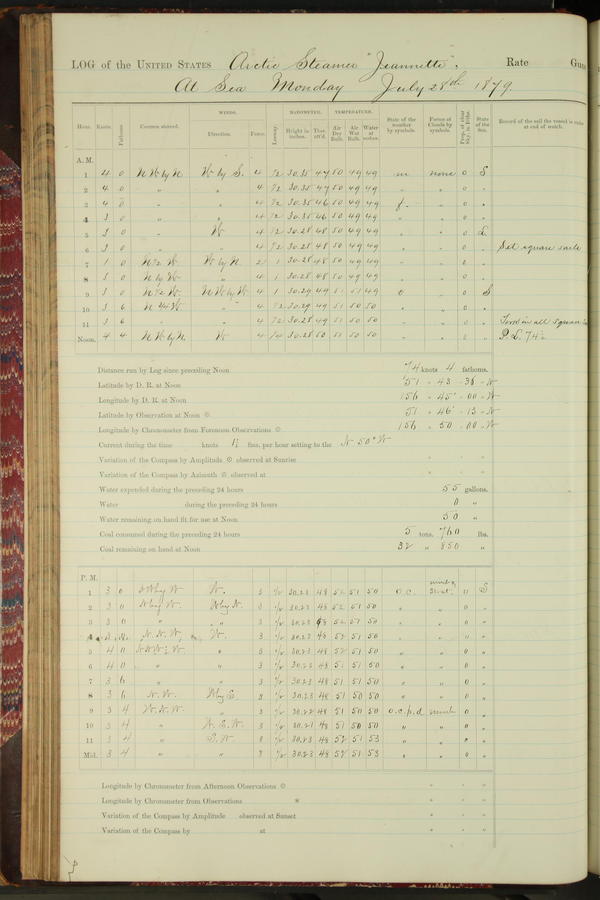 LOG of the UNITED STATES Arctic Steamer "Jeannette", Rate Guns
At Sea Monday July 28th 1879.
Hour. Knots. Fathoms Courses steered. WINDS. Direction. Force. Leeway. BAROMETER. Height in inches. Ther. att'd. TEMPERATURE. Air Dry Bulb. Air Wet Bulb. Water at surface. State of the weather by symbols. Forms of Clouds by symbols. Prop. of clear Sky, in 10ths. State of the Sea. Record of the sail the vessel is under at end of watch.
A. M.
1 4 0 N W by N W by S. 4 1/2 30.35 47 50 49 49 m none 0 S
2 4 0 " " 4 1/2 30.35 47 50 49 49 " " 0 "
3 4 0 " " 4 1/2 30.35 46 50 49 49 f " 0 "
4 3 0 " " 4 1/2 30.35 46 50 49 49 " " 0 "
5 3 0 " W 4 1/2 30.28 48 50 49 49 " " 0 L
6 3 0 " " 4 1/2 30.28 48 50 49 49 " " 0 " Set square sails
7 1 0 N 1/2 W. W by N. 2 1 30.28 48 50 49 49 " " 0 "
8 3 0 N by W " 4 1 30.28 48 50 49 49 " " 0 "
9 3 0 N 1/2 W. N W by W 4 1 30.29 49 51 51 49 " 0 S
10 3 6 N 3/4 W. " 4 1/2 30.29 49 51 50 50 " " 0 "
11 3 6 " " 4 1/2 30.28 49 51 50 50 " " 0 " in all square
Noon. 4 4 N W by N. W 4 1/4 30.28 50 51 50 50 " " 0 " P. L. 74
Distance run by Log since preceding Noon 74 knots 4 fathoms.
Latitude by D. R. at Noon 51 - 43 - 36 - N
Longitude by D. R. at Noon 156 - 45 - 00 - W
Latitude by Observation at Noon ☉ 51 - 46 - 13 - N
Longitude by Chronometer from Forenoon Observations ☉ 156 - 50 - 00 - W
Current during the time knots 1 fms, per hour setting to the N 50° W
Variation of the Compass by Amplitude ☉ observed at Sunrise
Variation of the Compass by Azimuth ☉ observed at
Water expended during the preceding 24 hours 55 gallons.
Water during the preceding 24 hours 0 "
Water remaining on hand fit for use at Noon 50 "
Coal consumed during the preceding 24 hours 5 tons. 760 lbs.
Coal remaining on hand at Noon 32 " 850 "
P. M.
1 3 0 W. 3 1/2 30.23 48 52 51 50 o. c. 0 S
2 3 0 N by W. W by N. 3 1/2 30.23 48 52 51 50 " " 0 "
3 3 0 " " 3 1/2 30.23 48 52 51 50 " " 0 "
4 N. W. W. 3 1/2 30.23 48 52 51 50 " " 0 "
5 4 0 " 3 1/2 30.23 48 52 51 50 " " 0 "
6 4 0 " " 3 1/2 30.23 48 51 51 50 " " 0 "
7 3 6 " " 3 1/2 30.23 48 51 51 50 " " 0 "
8 3 6 N. W. W by S. 3 1/2 30.23 48 51 50 50 " " 0 "
9 3 4 " 3 1/2 30.22 48 51 50 50 o. c. p. d 0 "
10 3 4 " W. S. W. 3 1/2 30.21 48 51 50 50 " " 0 "
11 3 4 " S. W. 3 1/2 30.23 48 52 51 53 " " 0 "
Mid. 3 4 " " 3 1/2 30.23 48 52 51 53 " " 0 "
Longitude by Chronometer from Afternoon Observations ☉
Longitude by Chronometer from Observations *
Variation of the Compass by Amplitude observed at Sunset
Variation of the Compass by at